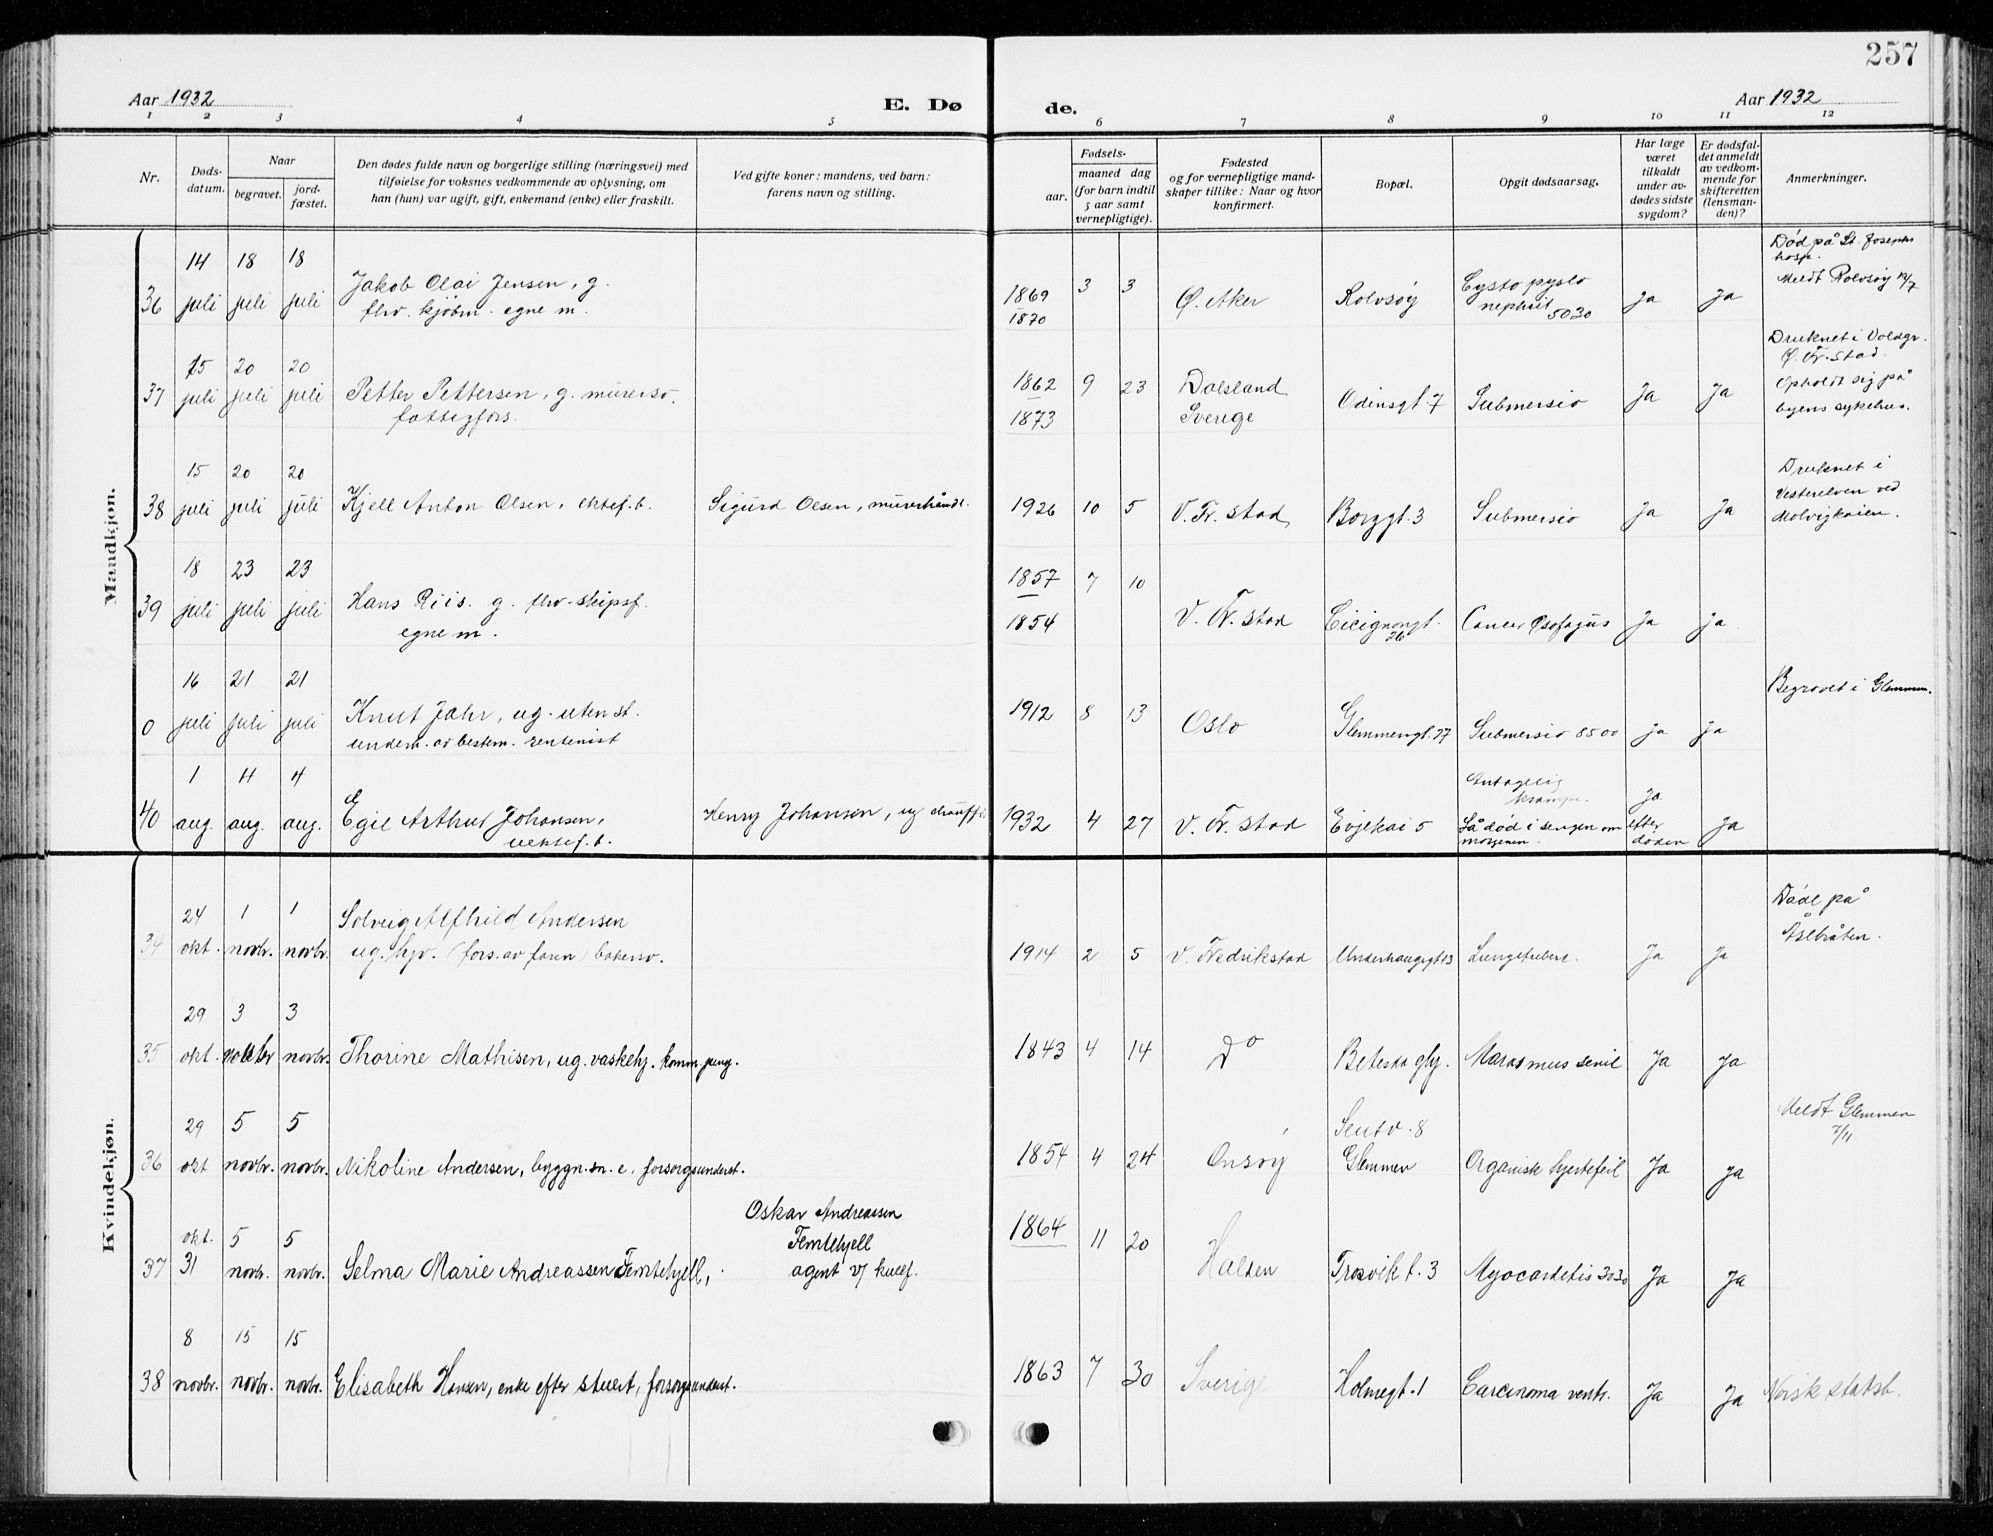 257
Aar 1932
E. Dø
de.
Aar 1932
1 2 3 3 4 5 6 7 8 9 10 11 12
Nr.
Døds-
datum.
Naar
begravet.
jord-
fæstet.
Den dødes fulde navn og borgerlige stilling (næringsvei) med
tilføielse for voksnes vedkommende av oplysning, om
han (hun) var ugift, gift, enkemand (enke) eller fraskilt.
Ved gifte koner: mandens, ved barn:
farens navn og stilling.
Fødsels-
aar.
maaned dag
(for barn indtil
5 aar samt
vernepligtige).
Fødested
og for vernepligtige mand-
skaper tillike: Naar og hvor
konfirmert.
Bopæl.
Opgit dødsaarsag.
Har læge
været
tilkaldt
under av-
dødes sidste
sygdom?
Er dødsfal-
det anmeldt
av vedkom-
mende for
skifteretten
(lensman-
den)?
Anmerkninger.
Mandkjøn.
36
14 juli
18 juli
18 juli
Jakob Olai Jensen, g.
fhv. kjøbm. egne m.
1869
1870
3 3
Ø. Aker
Rolvsøy
Cysto pyelo
nephrit 5030
Ja
Ja
Død på St. Josephs
hosp.
Meldt Rolvsøy
37
15 juli
20 juli
20 juli
Petter Pettersen, g. murersv.
fattigfors.
1862
1873
9 23
Dalsland
Sverige
Odinsgt 7
Submersio
Ja
Ja
Druknet i Voldgr.
Ø. Fr. stad.
Opholdt sig på
byens sykehus.
38
15 juli
20 juli
20 juli
Kjell Anton Olsen, ektef. b.
Sigurd Olsen, murerhåndl.
1926 10 5
V. Fr. stad
Borggt. 3
Submersio
Ja
Ja
Druknet i
Vesterelven ved
Molvigkaien.
39
18 juli
23 juli
23 juli
Hans Riis. g. fhv. skipsf.
egne m.
1857
1854
7 10
V. Fr. stad
Cicignongt.
26
Cancer Øsofagus
Ja
Ja
0
16 juli
21 juli
21 juli
Knut Jahr, ug. uten st.
underh. av bestem. rentenist
1912 8 13
Oslo
Glemmengt. 27
Submersio 8500
Ja
Ja
Begravet i Glemmen.
40
1 aug.
4 aug.
4 aug.
Egil Arthur Johansen,
uektef. b.
Henry Johansen, ug chauff
1932 4 27
V. Fr. stad
Evjekai 5
Antagelig
krampe.
Lå død i sengen om
morgenen.
Ja
efter
døden
Ja
Kvindekjøn.
34
24 okt.
1 novbr.
1 novbr.
Solveig Alfhild Andersen
ug. hjv. (fors. av faren) bakersv.
1914 2 5
V. Fredrikstad
Underhaugsgt 13
Lungetuberk.
Ja
Ja
Døde på
Åslbråten.
35
29 okt.
3 novbr
3 novbr.
Thorine Mathisen, ug. vaskehj. komm. peng.
1843 4 14
Do
Betesda glhj.
Marasmus senil
Ja
Ja
36
29 okt
5 novbr.
5 novbr.
Nikoline Andersen, byggn. sn. e. forsorgsunderst.
1854 4 24
Onsøy
Sentv. 8
Glemmen
Organisk hjertefeil
Ja
Ja
Meldt Glemmen
7/11
37
okt. 31
5 novbr.
5 novbr.
Selma Marie Andreassen Femtehjell,
Oskar Andreassen
Femtehjell
agent v/ kullf.
1864 11 20
Halden
Trosvik t. 3
Myocarditis 3030
Ja
Ja
38
8 novbr.
15 novbr.
15 novbr.
Elisabeth Hansen, enke efter stuert, forsorgsunderst.
1863 7 30
Sverige
Holmegt. 1
Carcinoma ventr.
Ja
Ja
Norsk statsb.